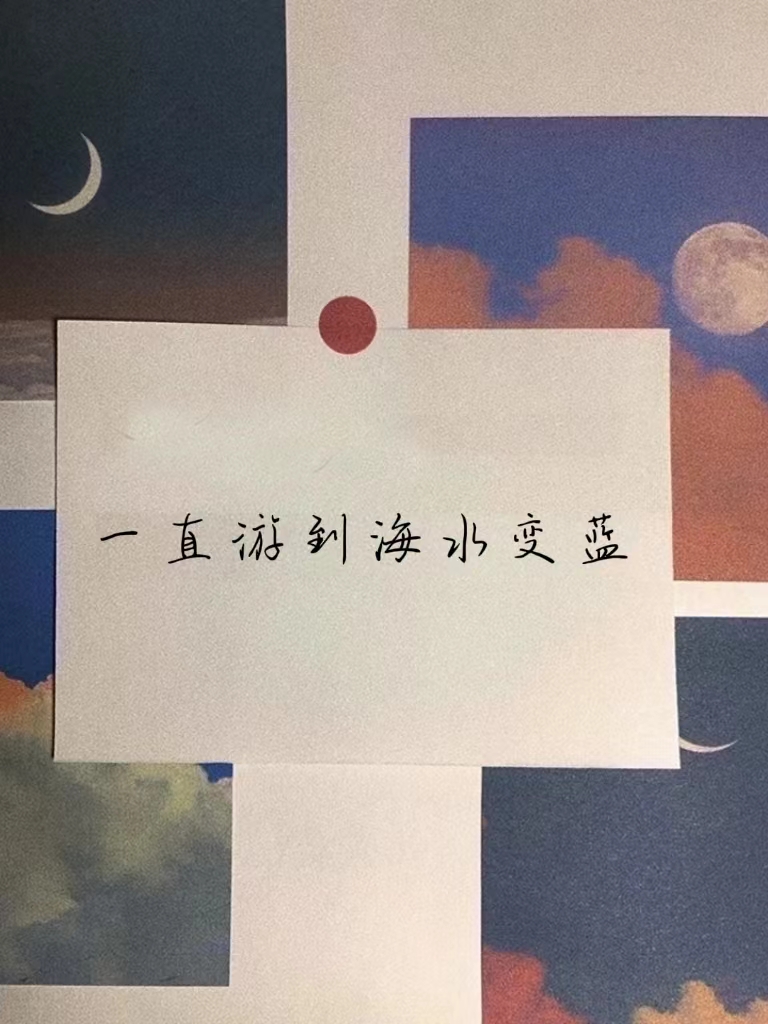 一直游到海水变蓝